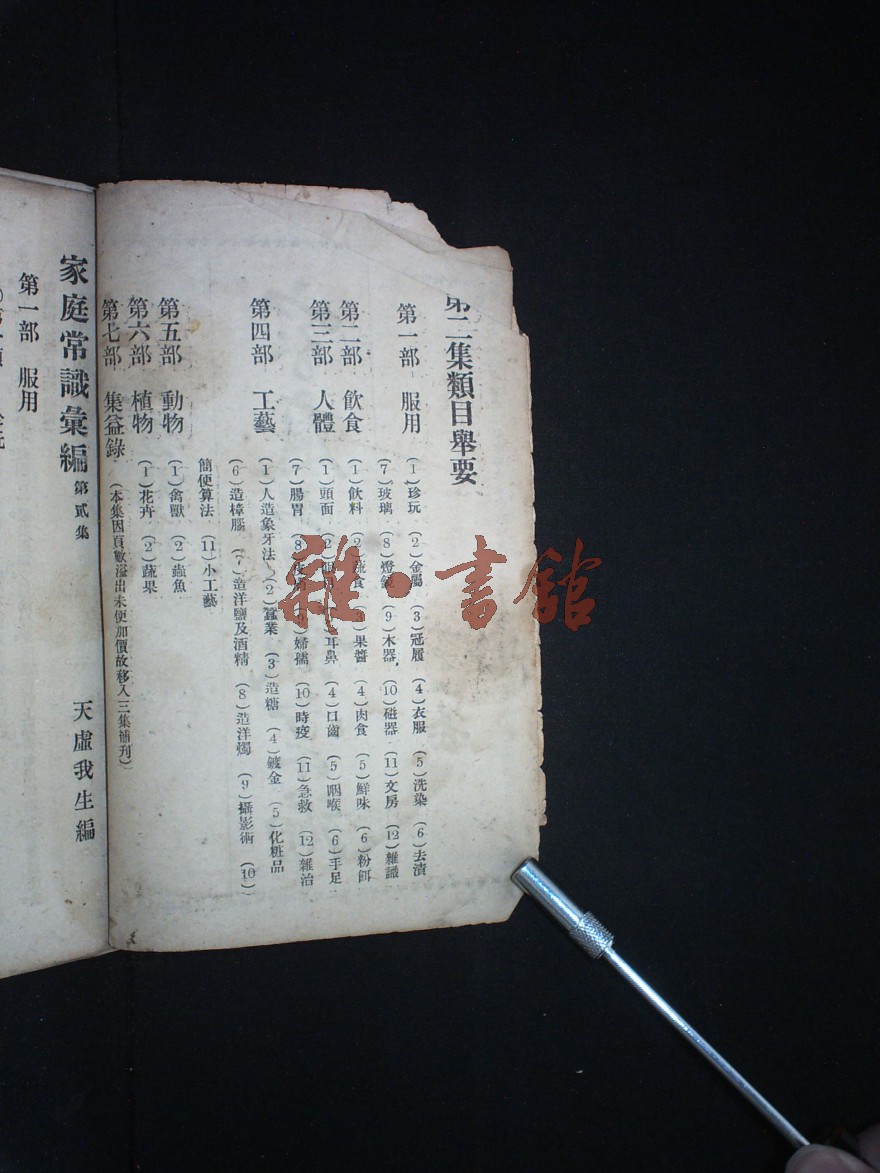 第二集類目舉要
第一部 服用 (1)珍玩 (2)金屬 (3)冠履 (4)衣服 (5)洗染 (6)去漬
(7)玻璃 (8)燈鏡 (9)木器 (10)磁器 (11)文房 (12)雜識
第二部 飲食 (1)飲料 (2)蔬食 (3)果醬 (4)肉食 (5)鮮味 (6)粉餌
第三部 人體 (1)頭面 (2)眼目 (3)耳鼻 (4)口齒 (5)咽喉 (6)手足
(7)腸胃 (8) (9)婦孺 (10)時疫 (11)急救 (12)雜治
第四部 工藝 (1)人造象牙法 (2)蠶業 (3)造糖 (4)鍍金 (5)化粧品
(6)造樟腦 (7)造洋鹽及酒精 (8)造洋燭 (9)攝影術 (10)
簡便算法 (11)小工藝
第五部 動物 (1)禽獸 (2)蟲魚
第六部 植物 (1)花卉 (2)蔬果
第七部 集益錄 (本集因頁數溢出未便加價故移入三集補刊)
家庭常識彙編 第貳集 天虛我生編
第一部 服用
雜·書館